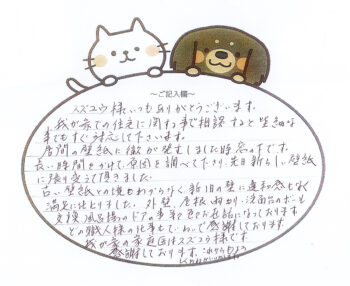 ～ご記入欄～
スズユウ様いつもありがとうございます。
我が家での住宅に関する事で相談すると些細な
事でもすぐ対応して下さいます。
居間の壁紙に黴が発生しました時
長い時間をかけて原因を調べて下さり、先日新しい壁紙
に張り変えて頂きました。
古い壁紙との境もわからなく、新旧の壁に違和感もなく
満足に仕上りました。外壁、屋根、雨樋、洗面台のボール
交換、風呂場のドアの事等色々お世話になっております
どの職人様の仕事も ていねいで感謝しております。
我が家の家庭医はスズユウ様です
感謝しております。これからもよろ
しくお願いいたします